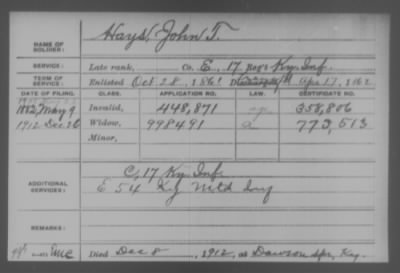 Hays, John T.
NAME OF SOLDIER:
SERVICE: Late rank, Co. E, 17 Reg't Ky. Inf.
TERM OF SERVICE: Enlisted Oct 28, 1861 Apr. 17, 1862
DATE OF FILING. CLASS. APPLICATION NO. LAW. CERTIFICATE NO.
1882, May 9 Invalid, 448,871 358,806
1912 Dec 26 Widow, 998491 773,513
Minor,
C, 17 Ky. Inf.
ADDITIONAL SERVICES: E 54 Ky Mtd Inf
REMARKS:
Died Dec 8, 1912, at Dawson Spr, Ky.